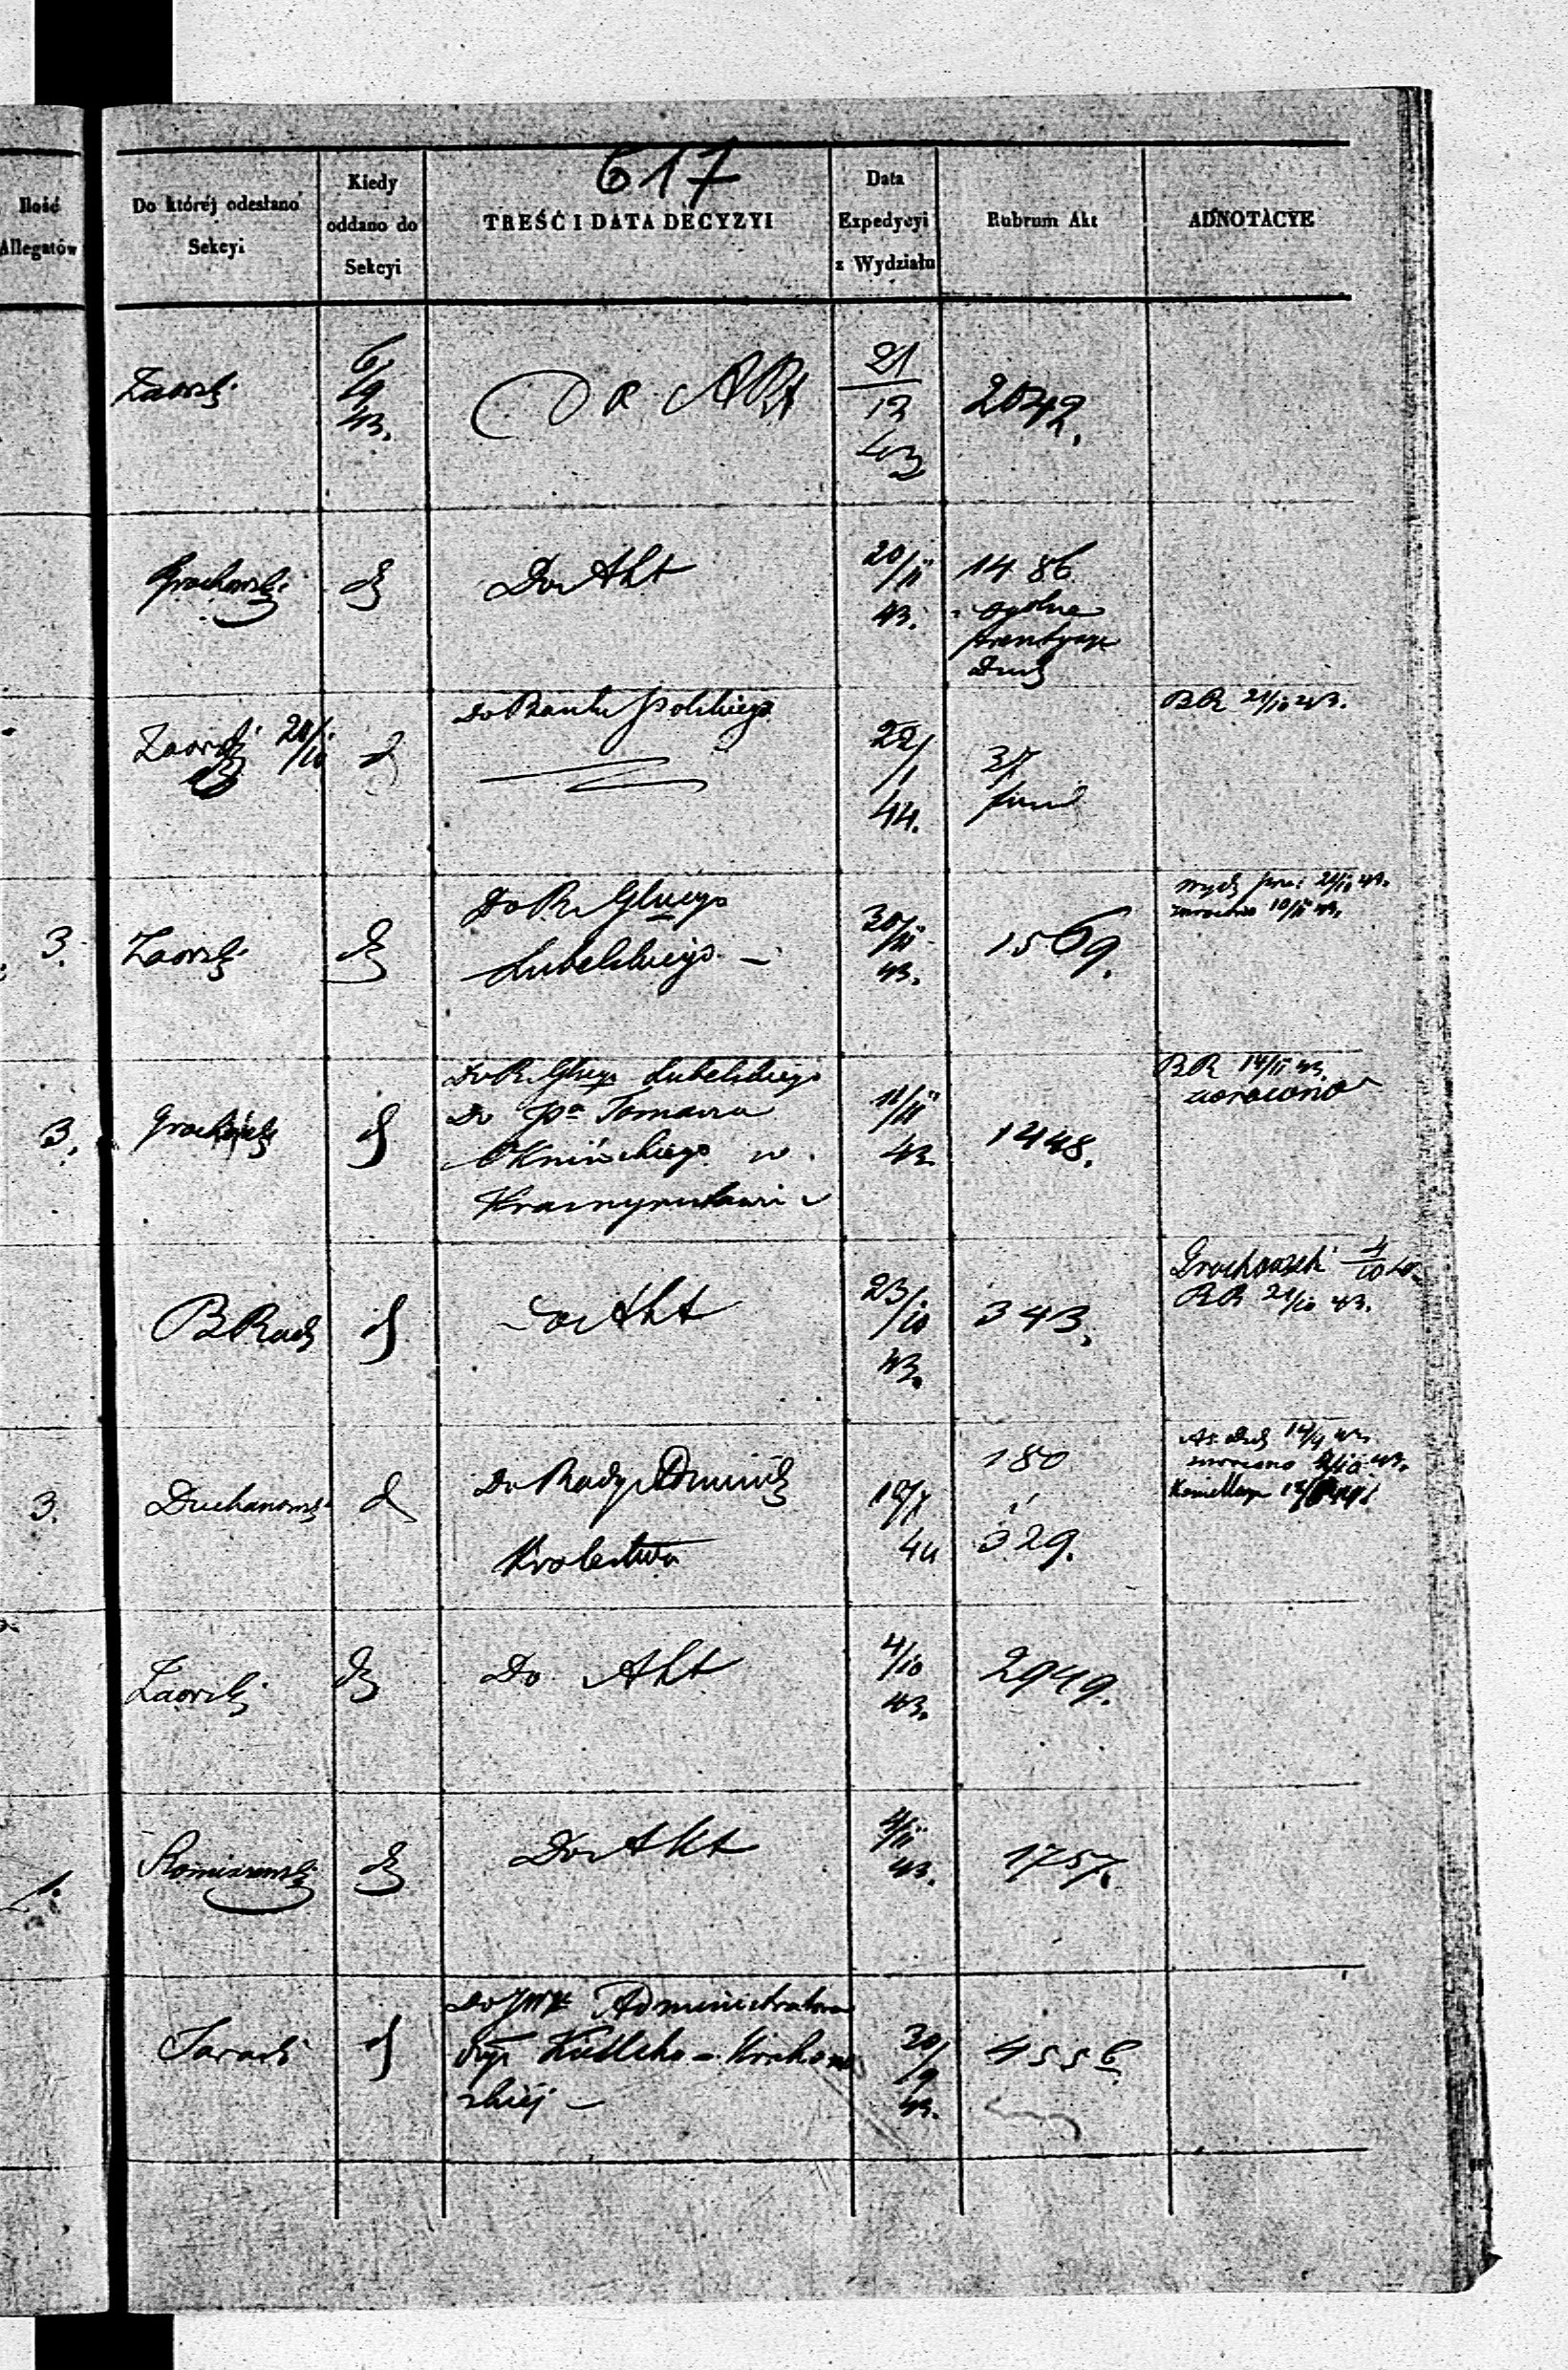 617
Ilość
Allegatów
Do któréj odesłano
Sekcyi
Kiedy
oddano do
Sekcyi
TREŚĆ I DATA DECYZYI
Data
Expedycyi
z Wydziału
Rubrum Akt
ADNOTACYE
Zaorski
6/9
43.
Do Akt
21
12
43
2042.
Grochowski
Do Akt
20/11
43.
1486
ogólne
Duch
Zaorski 20/10
Do Banku Polskiego
22/1
44.
37
fund
BR 21/10 43.
3.
Zaorski
Do R. Gluego
Lubelskiego. —
30/11
43.
1569.
21/10 43.
zwrócono 10/11 43.
3.
Grochowski
Do R. Gluego Lubelskiego
Do Pa Tomasza
Oknińskiego w
Krasnymstawie
11/11
43
1448.
BR 14/11 43
zwrócono
BRach
Do Akt
23/10
43.
343.
Grochowski 4/10 43
BR 21/10 43.
3.
Duchanowski
Do Rady Adminis
Królestwa
10/7
44
180
i
329.
zwrócono 43.
Zaorski
Do Akt
4/10
43.
2949.
1.
Komiarowski
Do Akt
4/11
43.
1757.
Sarach
Do JWX Administratora
Dyi Kielcko-Krakow
skiéj —
30/9
43.
4556